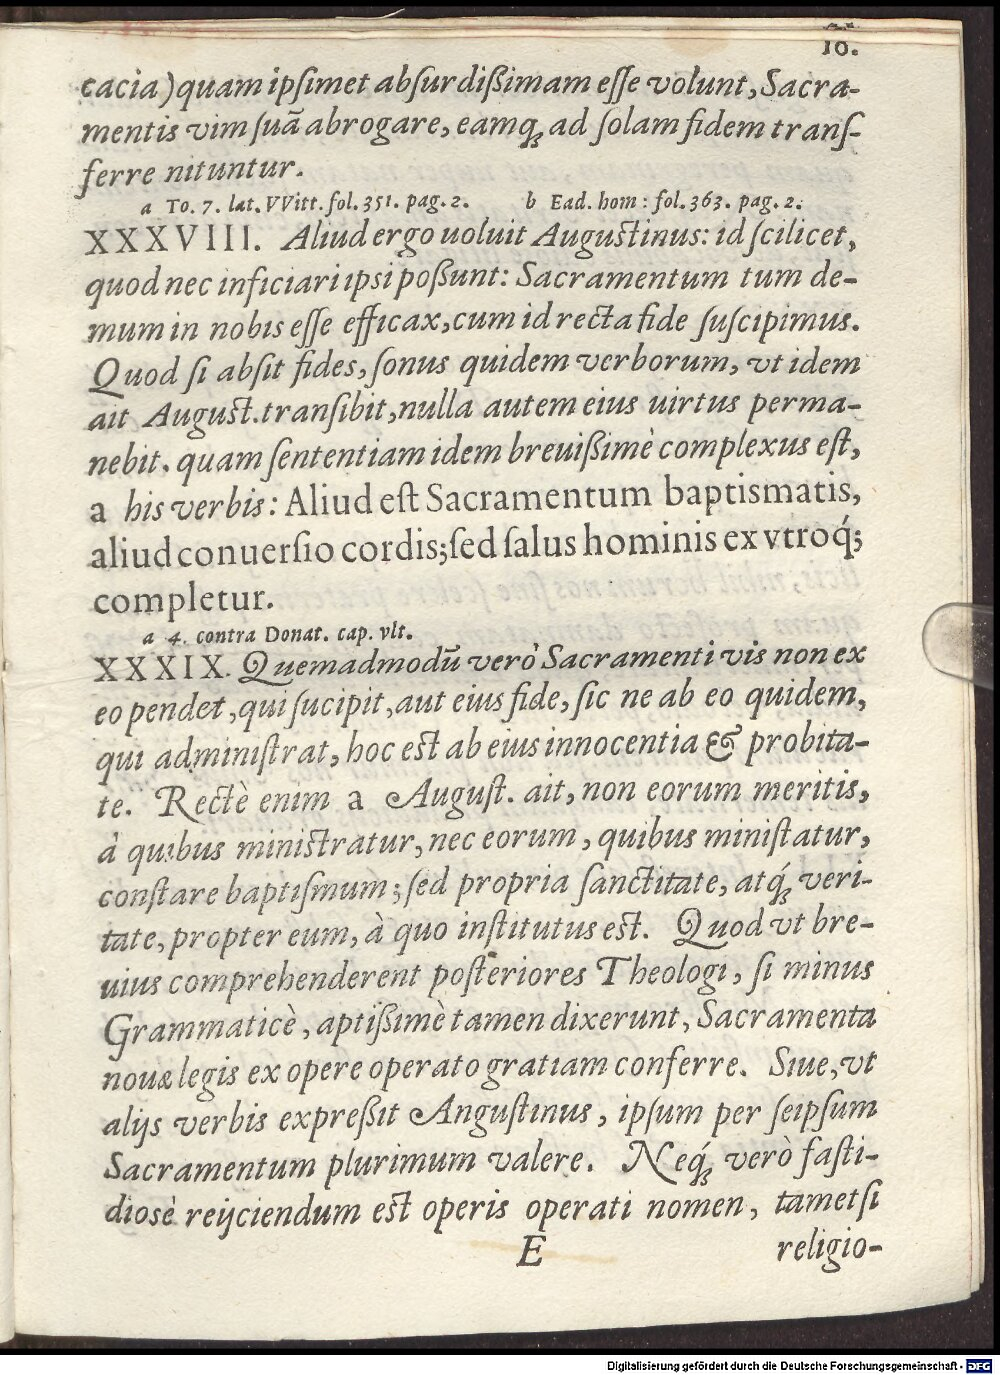 16.
cacia) quam ipſimet abſurdißimam eſſe volunt, Sacra-
mentis vim ſuã abrogare, eamq́ꝫ ad ſolam fidem tranſ-
ferre nituntur.
a To. 7. lat. VVitt. fol. 351. pag. 2. b Ead. hom: fol. 363. pag. 2.
XXXVIII. Aliud ergo uoluit Auguſtinus: id ſcilicet,
quod nec inficiari ipsi poßunt: Sacramentum tum de-
mum in nobis eſſe efficax, cum id recta fide ſuſcipimus.
Quod ſi abſit fides, ſonus quidem verborum, vt idem
ait Auguſt. tranſibit, nulla autem eius uirtus perma-
nebit. quam ſententiam idem breuißimè complexus eſt,
a his verbis: Aliud eſt Sacramentum baptismatis,
aliud conuerſio cordis; ſed ſalus hominis ex vtroq́ꝫ
completur.
a 4. contra Donat. cap. vlt.
XXXIX. Quemadmodũ verò Sacramenti vis non ex
eo pendet, qui ſucipit, aut eius fide, ſic ne ab eo quidem,
qui adminiſtrat, hoc eſt ab eius innocentia & probita-
te. Rectè enim a Auguſt. ait, non eorum meritis,
à quibus miniſtratur, nec eorum, quibus miniſtatur,
conſtare baptiſmum; ſed propria ſanctitate, atq́ꝫ veri-
tate, propter eum, à quo inſtitutus eſt. Quod vt bre-
uius comprehenderent poſteriores Theologi, ſi minus
Grammaticè, aptißimè tamen dixerunt, Sacramenta
nouæ legis ex opere operato gratiam conferre. Siue, vt
alijs verbis expreßit Anguſtinus, ipſum per ſeipſum
Sacramentum plurimum valere. Neq́ꝫ verò faſti-
diosè reijciendum eſt operis operati nomen, tametſi
E religio-
Digitalisierung gefördert durch die Deutsche Forschungsgemeinschaft - DFG